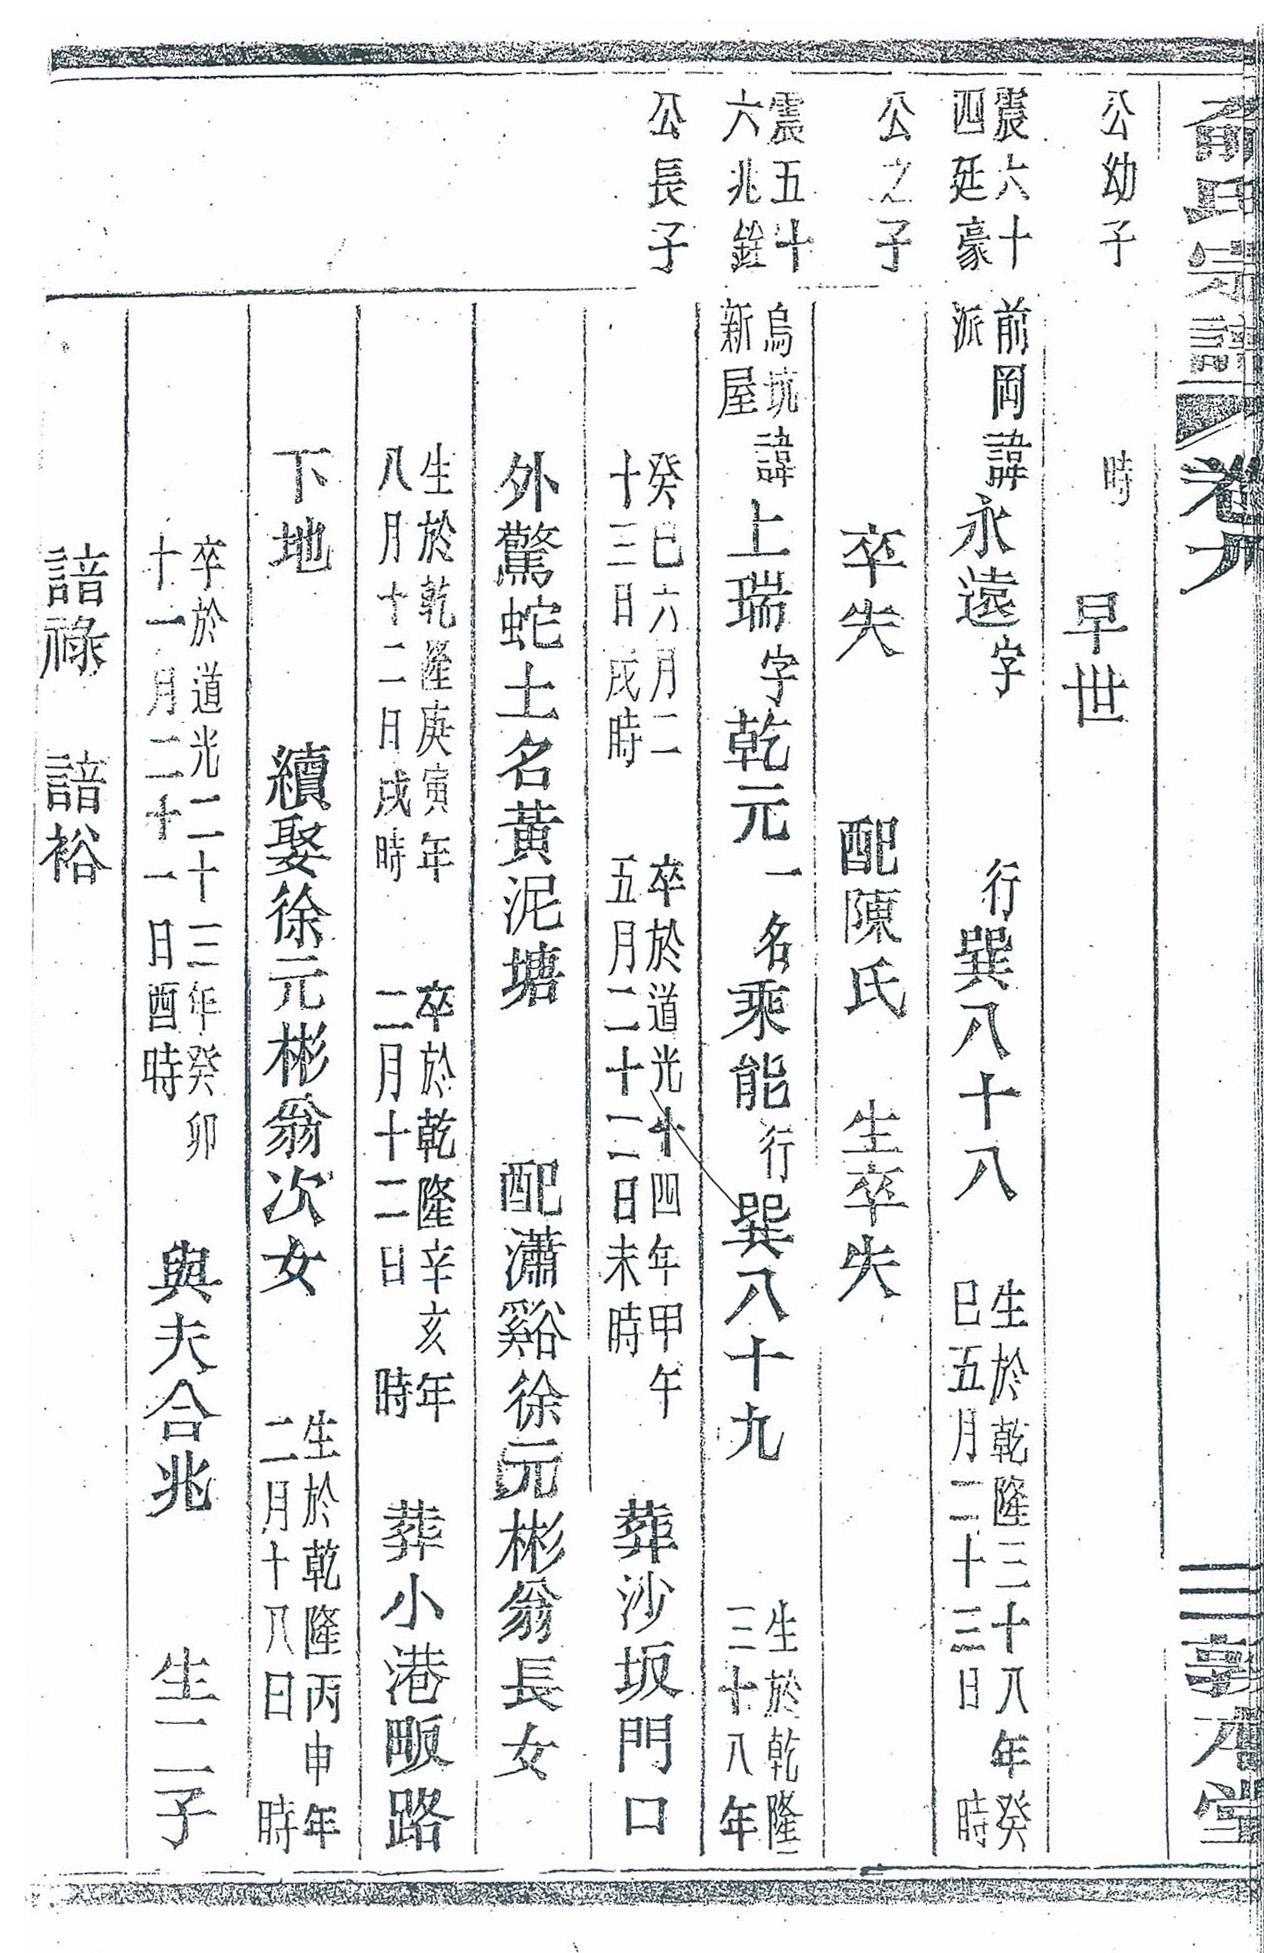 俞氏宗譜 卷九 三 敦本堂
公幼子 時 早世
震六十四延豪 前岡派 諱永遠字 行巽八十八 生於乾隆三十八年癸巳五月二十三日 時
公之子 卒失 配陳氏 生卒失
震五十六兆銓 烏坑新屋 諱上瑞字乾元一名乘能行巽八十九 生於乾隆三十八年
公長子 癸巳六月二十三日戌時 卒於道光十四年甲午五月二十二日未時 葬沙坂門口
外驚蛇土名黃泥塘 配瀟谿徐元彬翁長女
生於乾隆庚寅年八月十二日戌時 卒於乾隆辛亥年二月十二日 時 葬小港畈路
下地 續娶徐元彬翁次女 生於乾隆丙申年二月十八日 時
卒於道光二十三年癸卯十一月二十一日酉時 與夫合兆 生二子
諳祿 諳裕